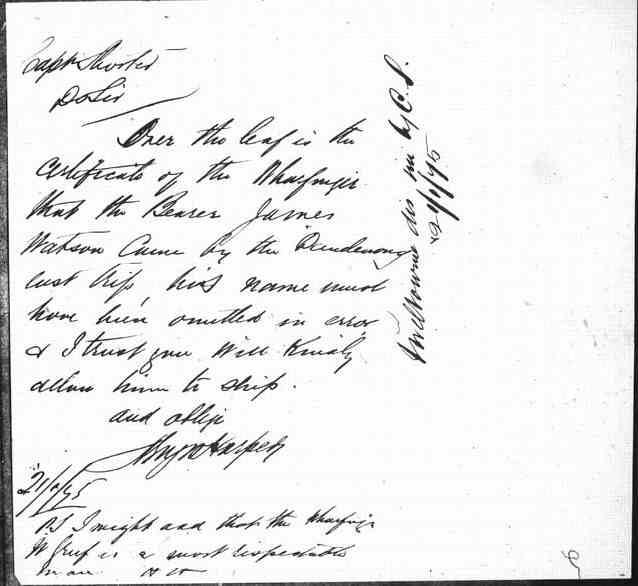 Capt Shorter
D Sir
Over the leaf is the
Certificate of the Wharfinger
that the Bearer James
Watson Came by the Dandenong
last trip his name must
have been omitted in error
& I trust you Will Kindly
allow him to ship.
and oblige
21/6/75
PS I might add that the Wharfinger
W is a most respectable
man
Melbourne dis by C. S.
22/6/75